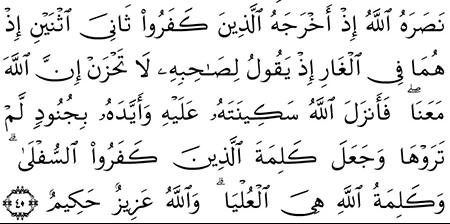 نَصَرَهُ ٱللَّهُ إِذْ أَخْرَجَهُ ٱلَّذِينَ كَفَرُوا۟ ثَانِىَ ٱثْنَيْنِ إِذْ
هُمَا فِى ٱلْغَارِ إِذْ يَقُولُ لِصَـٰحِبِهِۦ لَا تَحْزَنْ إِنَّ ٱللَّهَ
مَعَنَا ۖ فَأَنزَلَ ٱللَّهُ سَكِينَتَهُۥ عَلَيْهِ وَأَيَّدَهُۥ بِجُنُودٍ لَّمْ
تَرَوْهَا وَجَعَلَ كَلِمَةَ ٱلَّذِينَ كَفَرُوا۟ ٱلسُّفْلَىٰ ۗ
وَكَلِمَةُ ٱللَّهِ هِىَ ٱلْعُلْيَا ۗ وَٱللَّهُ عَزِيزٌ حَكِيمٌ ٤٠